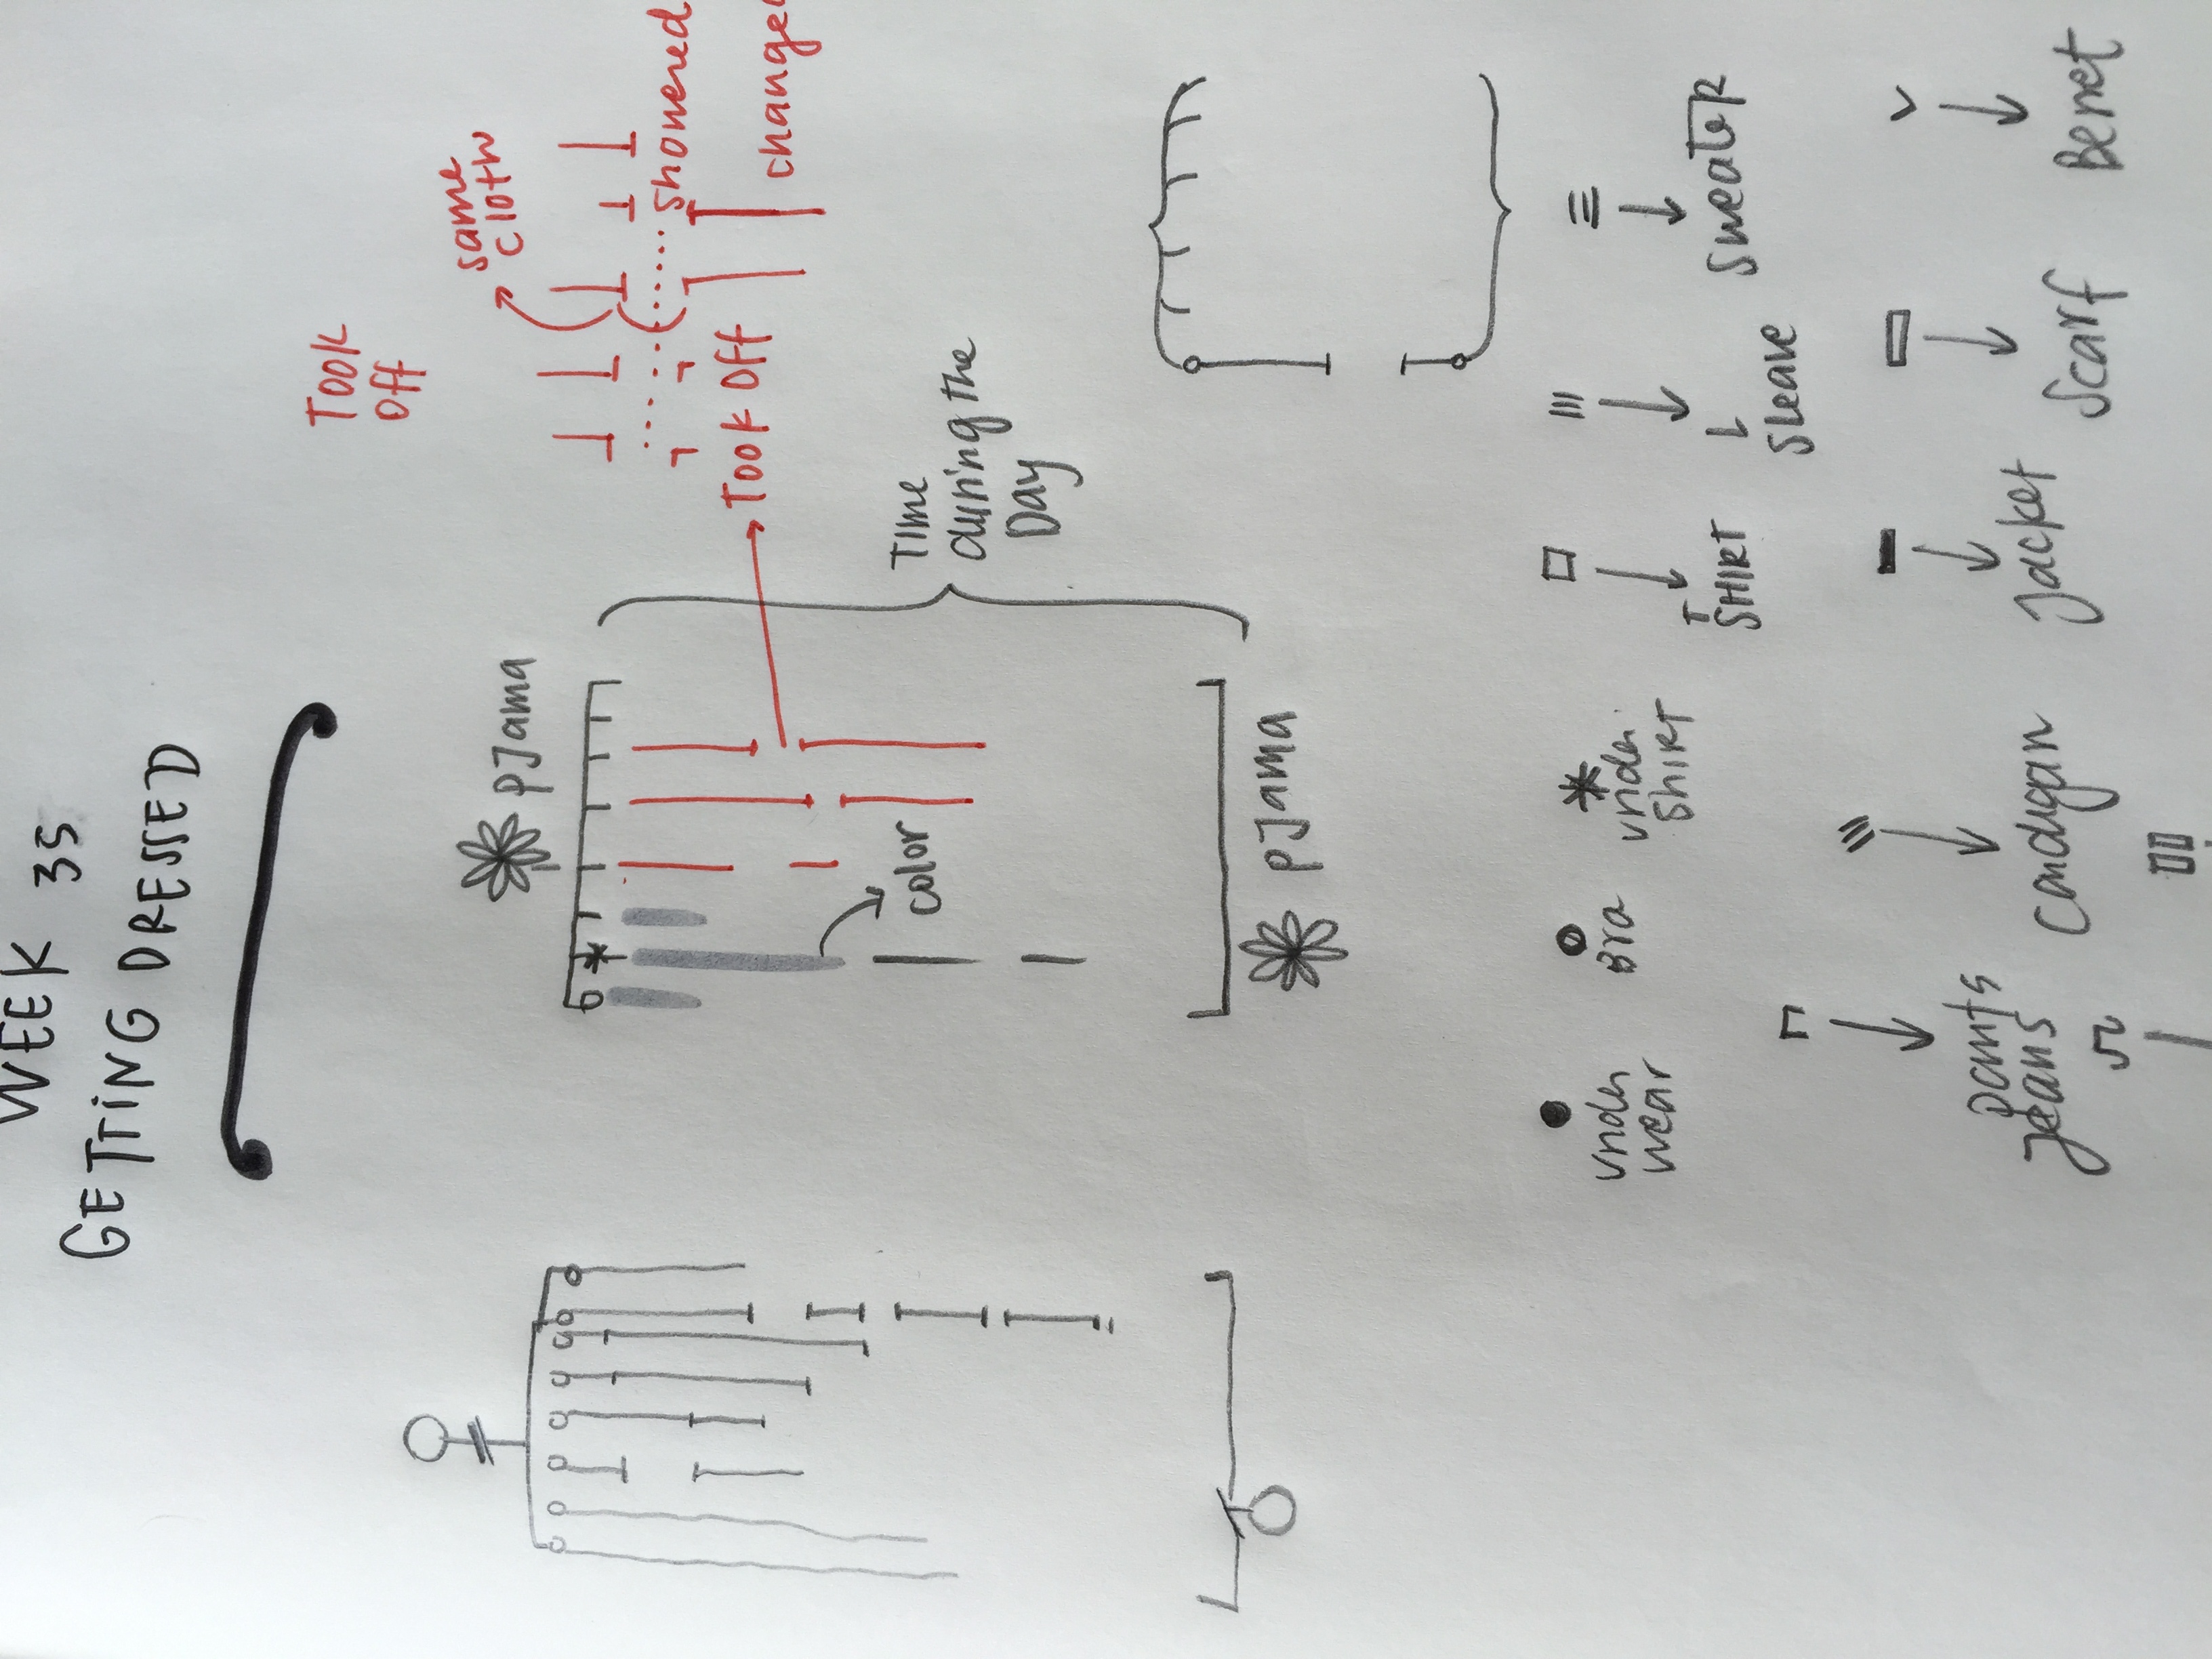 WEEK 35
GETTING DRESSED
Took
Off
same
cloth
showered
changed
Took Off
PJama
Time
during the
Day
color
PJama
under
wear
Bra
under
SHIRT
T
SHIRT
L
Sleave
Sweater
pants
jeans
Cardigan
Jacket
Scarf
Berret